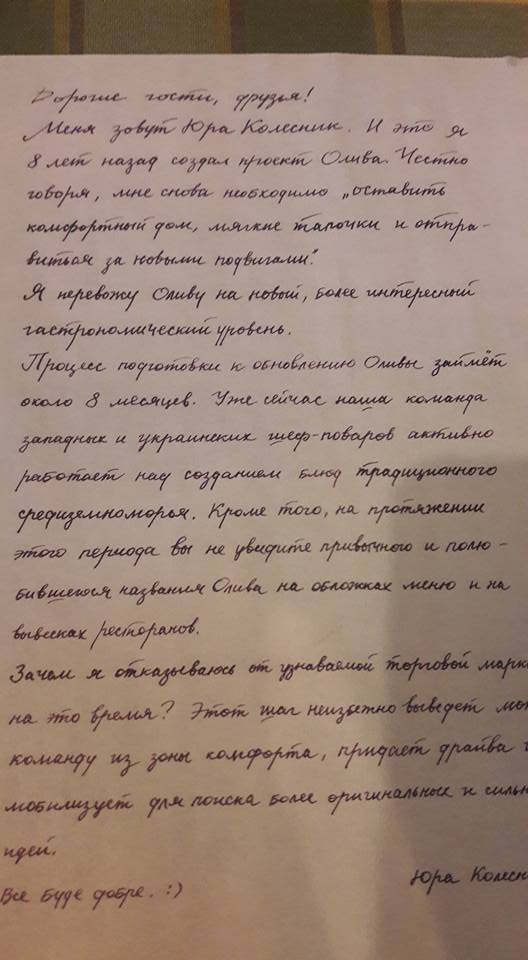 Дорогие гости, друзья!
Меня зовут Юра Колесник. И это я
8 лет назад создал проект Олива. Честно
говоря, мне снова необходимо „оставить
комфортный дом, мягкие тапочки и отпра-
виться за новыми подвигами".
Я перевожу Оливу на новый, более интересный
гастрономический уровень.
Процесс подготовки к обновлению Оливы займёт
около 8 месяцев. Уже сейчас наша команда
западных и украинских шеф-поваров активно
работает над созданием блюд традиционного
средиземноморья. Кроме того, на протяжении
этого периода вы не увидите привычного и полю-
бившегося названия Олива на обложках меню и на
вывесках ресторанов.
Зачем я отказываюсь от узнаваемой торговой марк
на это время? Этот шаг неизбежно выведет мо
команду из зоны комфорта, придаст драйва
мобилизует для поиска более оригинальных и сильн
идей.
Юра Колесн
Все буде добре. :)